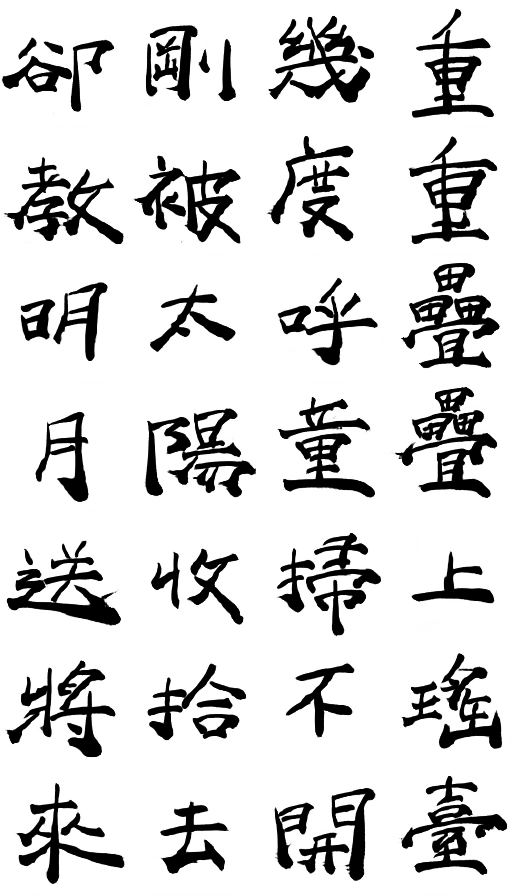 重重疊疊上瑤臺
幾度呼童掃不開
剛被太陽收拾去
卻教明月送將來